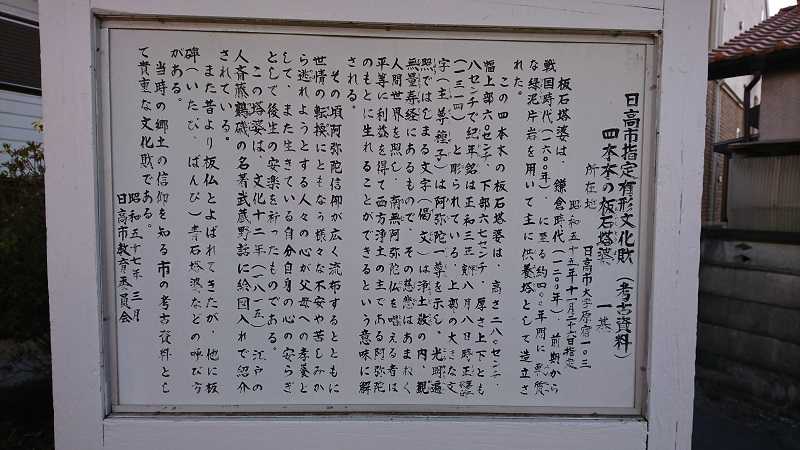 日高市指定有形文化財（考古資料）
四本木の板石塔婆　一基
所在地　日高市大字原宿一〇三
昭和五十五年十一月二十七日指定
板石塔婆は、鎌倉時代（一二〇〇年）、前期から
戦国時代（一六〇〇年）、に至る約四〇〇年間に秩父
な緑泥片岩を用いて主に供養塔として造立さ
れた
この四本木の板石塔婆は、高さ二八〇センチ、
幅上部六〇センチ、下部六七センチ、厚さ上下とも
八センチで紀年銘は正和三年八月八日
（一三一四）と彫られている。上部の大きな文
字（主尊種子）は阿弥陀一尊を示し、光明遍
照ではじまる文字（偈文）は浄土教の内、観
無量寿経にあるもので、その慈悲はあまねく
人間世界を照し、南無阿弥陀仏を唱える者は
平等に利益を得て西方浄土の主である阿弥陀
のもとに生れることができるという意味に解
される。
その頃阿弥陀信仰が広く流布するとともに
世情の転換にともなう様々な不安や苦しみか
ら逃れようとする人々の心が父母への孝養と
して、また生きている自分自身の心の安らぎ
として後生の安楽を祈ったものである。
この塔婆は、文化十二年（一八一五）江戸の
人斉藤鶴磯の名著武蔵野話に絵図入れで紹介
されている。
また昔より板仏とよばれてきたが、他に板
碑（いたひ、ばんひ）青石塔婆などの呼び方
がある。
当時の郷土の信仰を知る市の考古資料とし
て貴重な文化財である。
昭和五十七年三月
日高市教育委員会